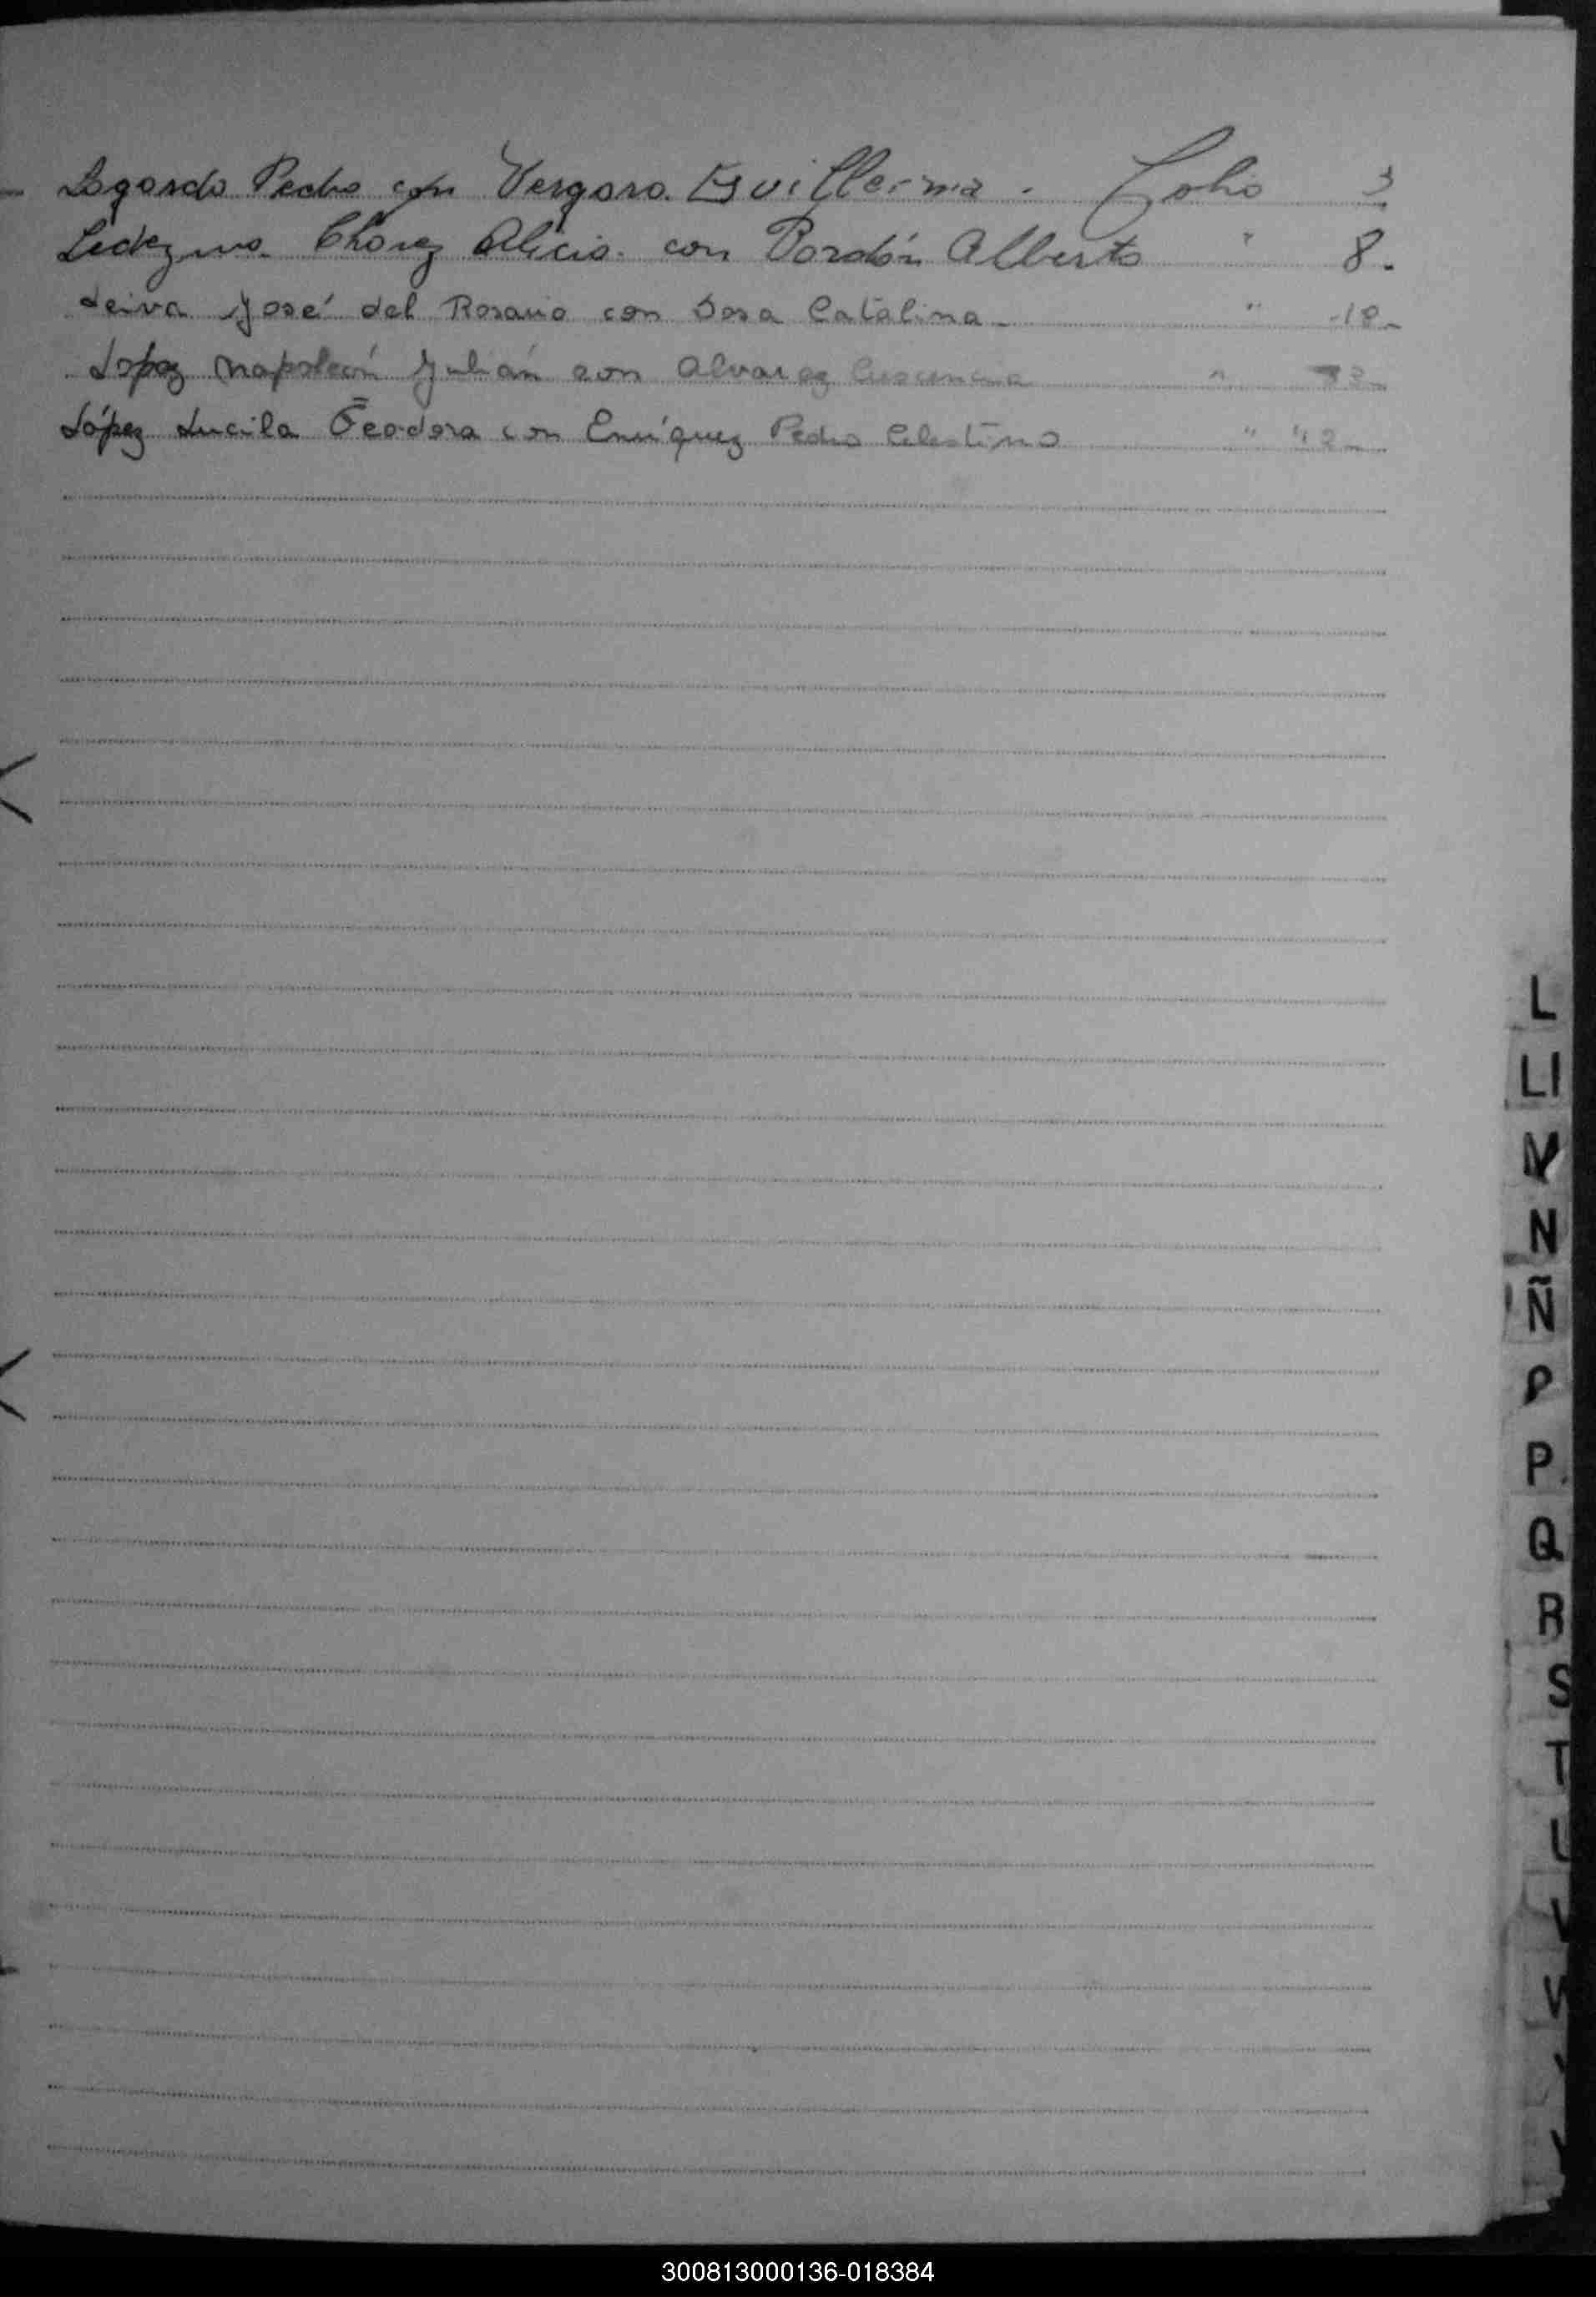 Logardo Pedro con Vergara Guillerma. Folio 3
Ledezma Chavez Alicia con Bordón Alberto " 8.
Leiva José del Rosario con Sosa Catalina "
Lopez Napoleón Julián con Alvarez "
López Lucila Teodora con Enríquez Pedro Celestino "
L
Ll
N
Ñ
P
P
Q
R
S
T
U
V
300813000136-018384